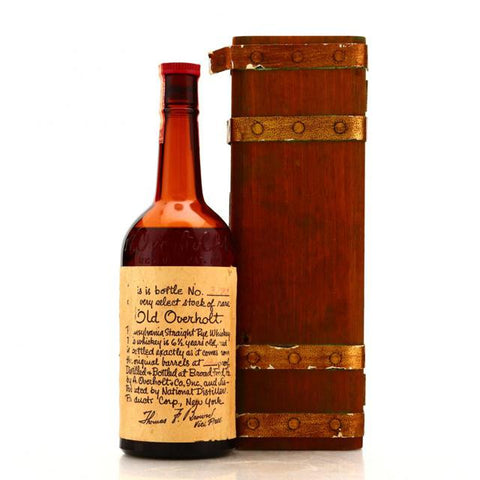 is is bottle No.
very select stock of rare
Old Overholt
nsylvania Straight Rye Whiskey
s whiskey is 6½ years old, and
bottled exactly as it comes from
original barrels at proof
Distilled & Bottled at Broad Ford, Pa.
by A. Overholt & Co., Inc. and dis-
ted by National Distillers
Products Corp., New York
Thomas F. Brown
Vice Pres.